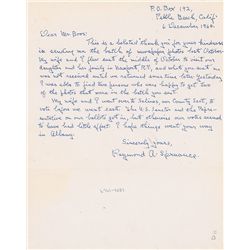 P.O. Box 192,
Pebble Beach, Calif.
6 December 1968.
Dear Mr. Boos:
This is a belated thank you for your kindness
in sending me the batch of newspaper photos last October.
My wife and I flew east the middle of October to visit our
daughter and her family in Newport, R.I., and what you sent me
was not received until we returned some time later. Yesterday
I was able to find two persons who were happy to get two
of the photos that were in the batch you sent.
My wife and I went to Salinas, our County Seat, to
vote before we went east. The U.S. Senator and the Repre-
sentative on our ballots got in, but otherwise our votes seemed
to have had little effect. I hope things went your way
in Albany.
Sincerely yours,
Raymond A. Spruance